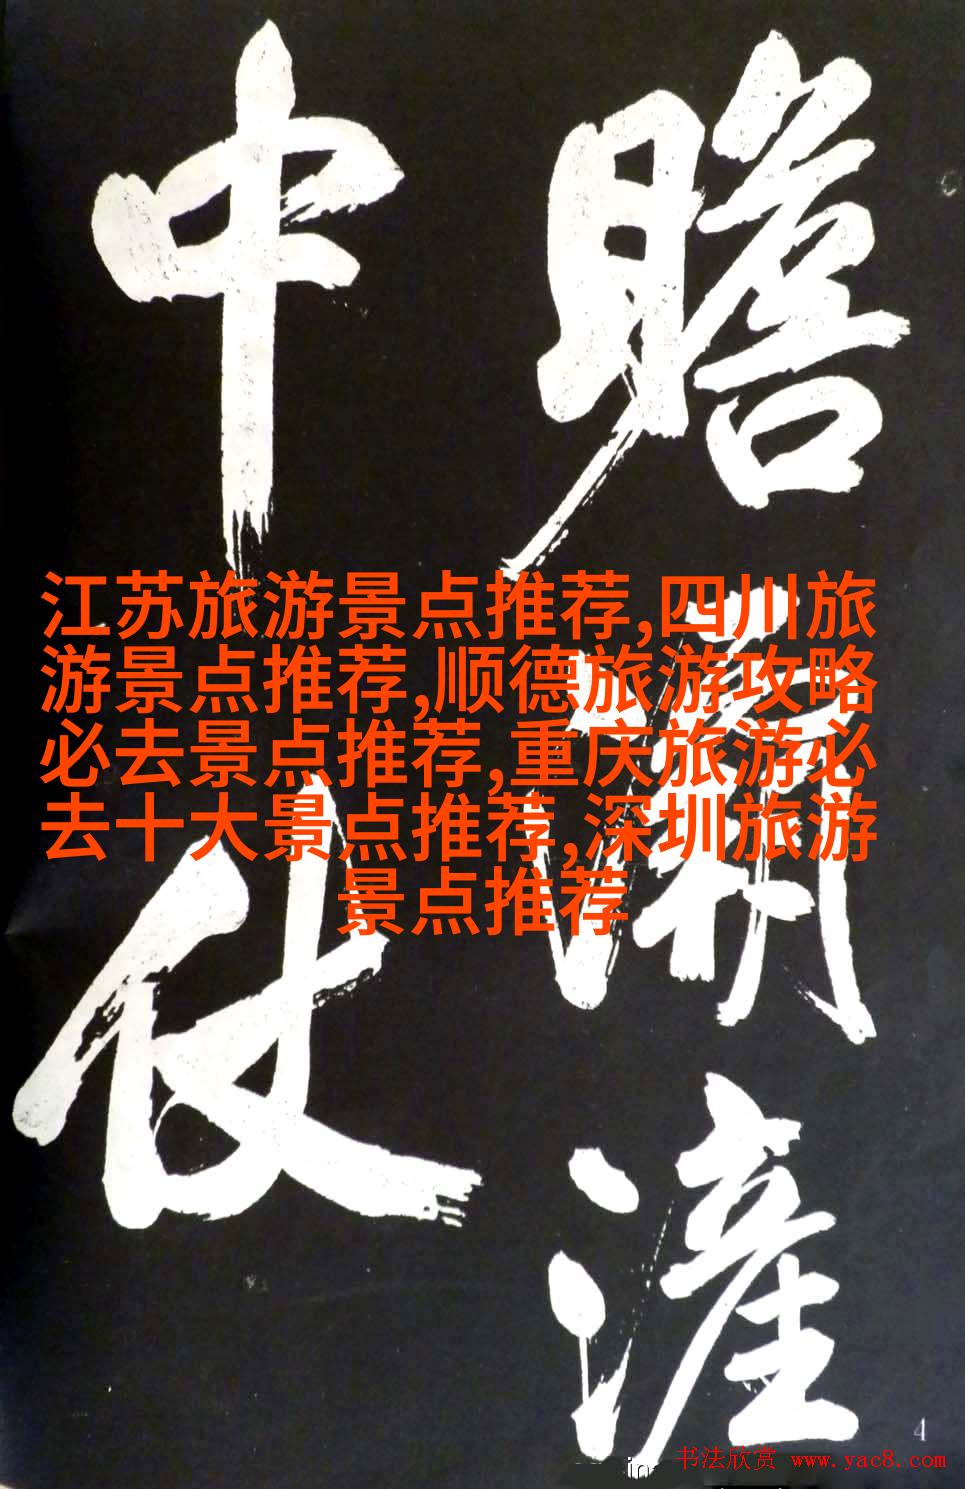 瞻
中
仗
江苏旅游景点推荐,四川旅
游景点推荐,顺德旅游攻略
必去景点推荐,重庆旅游必
去十大景点推荐,深圳旅游
景点推荐
4
书法欣赏 www.yac8.com